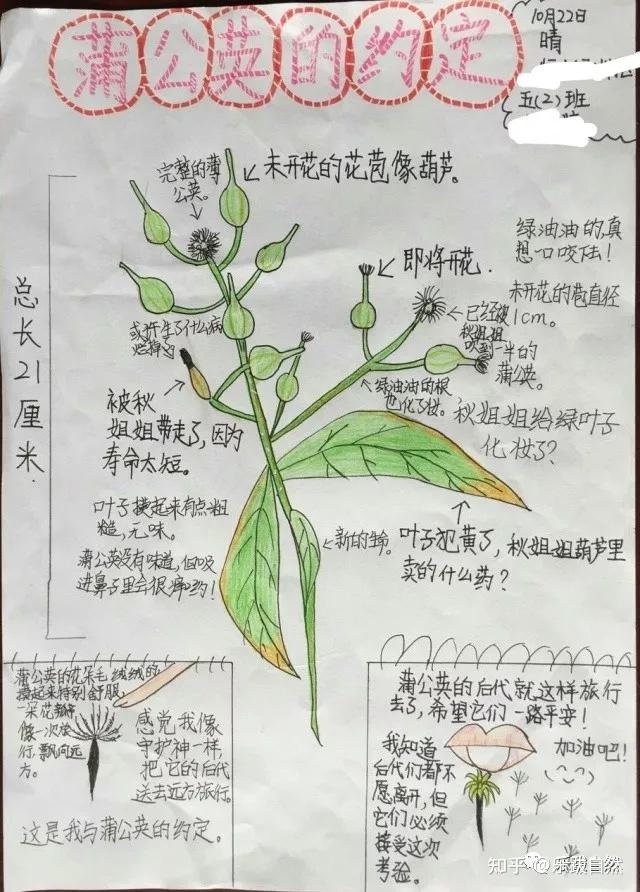 蒲公英的约定
10月22日
晴
五(2)班
完整的薄
公英。
未开花的花苞像葫芦。
绿油油的真
想一口咬下去!
即将开花.
未开花的苞直径
1cm。
已经被
秋姐姐
吹到一半的
蒲公英。
总长21厘米.
被秋
姐姐带走了,因为
寿命太短。
绿油油的根
也化了妆。
秋姐姐给绿叶子
化妆了?
叶子摸起来有点粗
糙,无味。
新的生命。
叶子犯黄了,秋姐姐葫芦里
卖的什么药?
蒲公英没有味道,但吸
进鼻子里会很痒哟!
蒲公英的花朵毛绒绒的
摸起来特别舒服,
一朵花都
像一次旅
行,飘向远
方。
感觉我像
守护神一样,
把它的后代
送去远方旅行。
这是我与蒲公英的约定。
蒲公英的后代就这样旅行
去了,希望它们一路平安!
我知道
后代们都不
愿离开,但
它们必须
接受这次
考验。
加油吧!
知乎 @乐跋自然